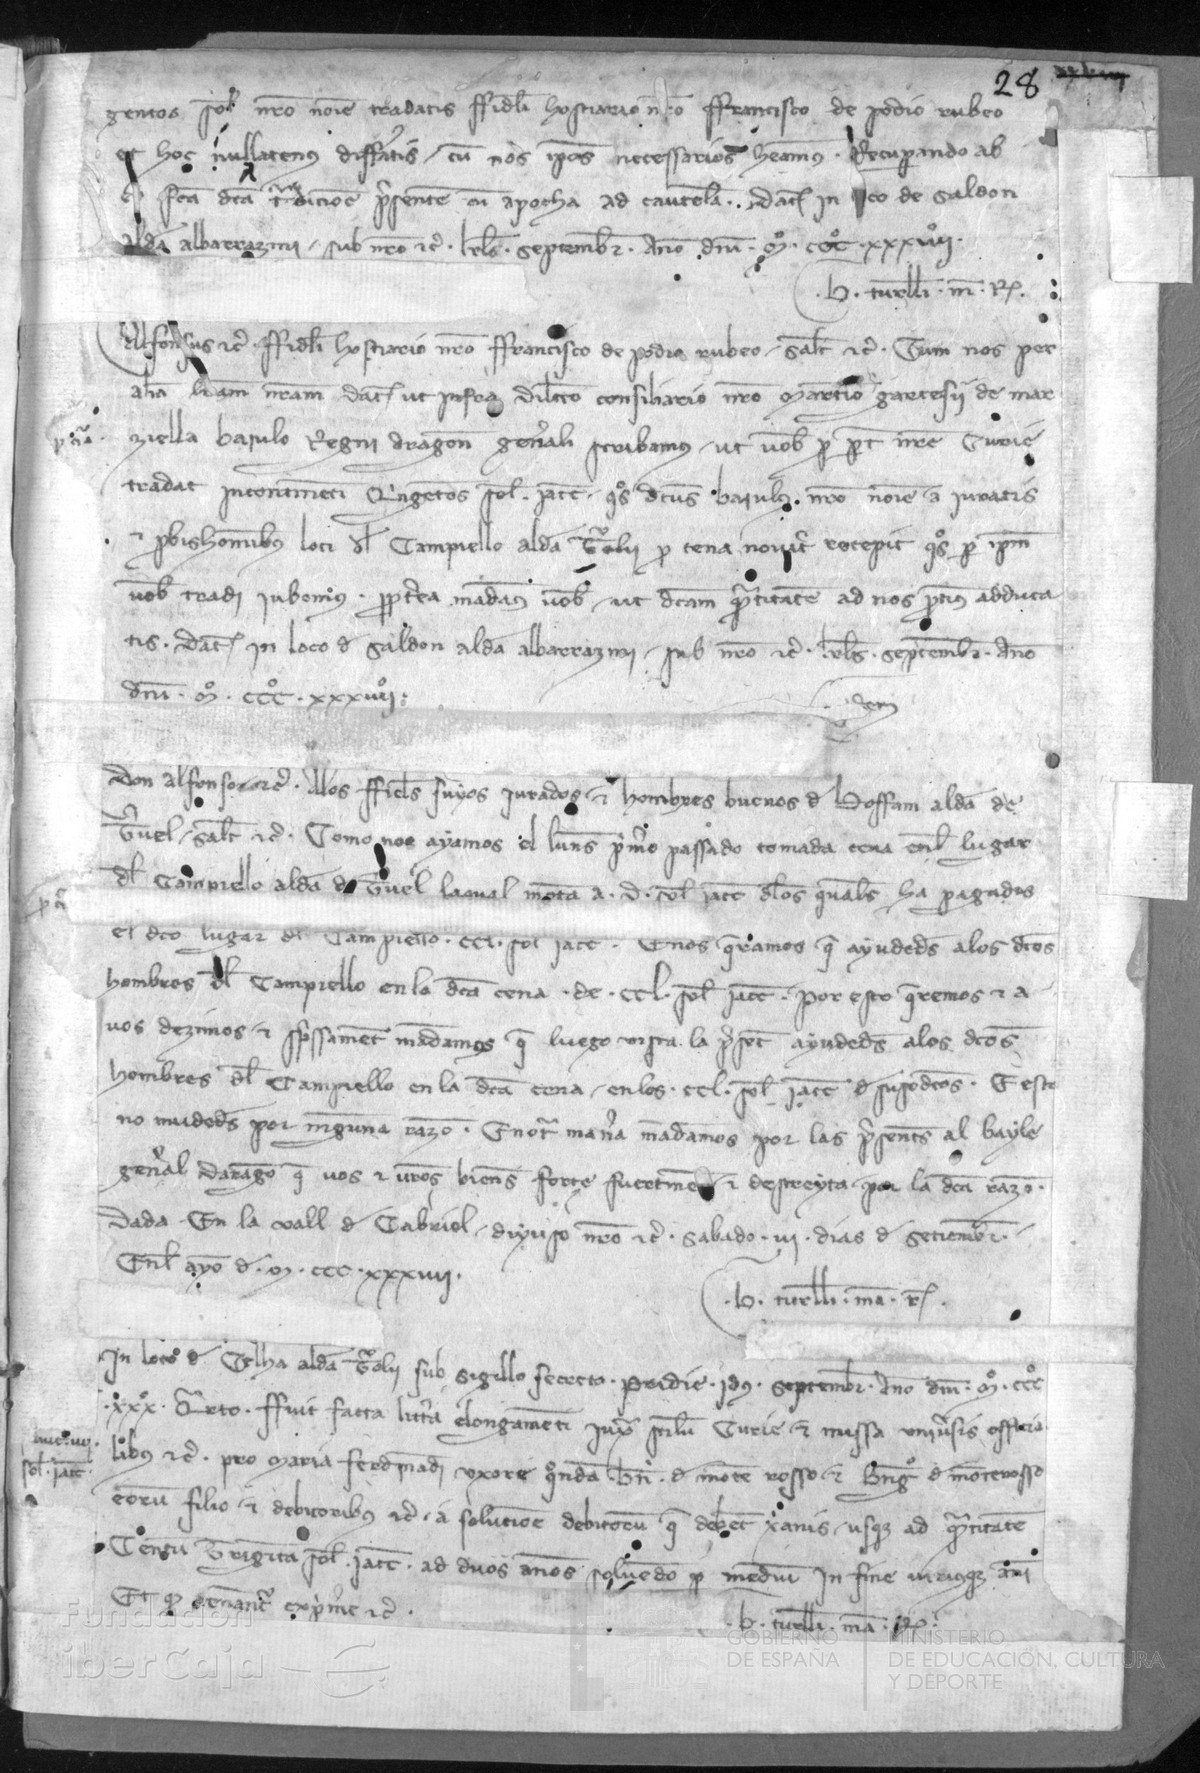 28
gentos sol nro noie tradatis ffideli hostiario nro ffrancisco de podio rubeo
et hoc nullatenus differatis, cu nos ipos necessarios heamus. Recuperando ab
eo fca dca tradicioe psente cu apocha ad cautela. Dat in loco de Saldon
aldea albarrazini, sub nro etc. kls. septembr. Ano dni. Mº. CCCº. xxxvii.
.b. turelli. m. R.
Alfonsus etc. ffideli hostiario nro ffrancisco de podio rubeo, Salt etc. Cum nos per
alia lram nram dat ut infra dilecto consiliario nro Martino garcesii de mar
ziella baiulo Regni aragon genali scribamus, ut vob p pt nre Curie
tradat incontinenti Quingetos sol. iacc. qos dcus baiulus nro noie a iuratis
& pbishominibus loci del Campiello aldea Turolii p cena noviter recepit qos p ipm
vob tradi iubemus. ppterea madamus vob, ut dcam quatitate ad nos ptinus adduca
tis. Dat in loco de Saldon aldea albarrazini, sub nro etc. kls. septembr. Ano
dni. Mº. CCCº. xxxvii.
Idem
Don alfonso etc. Alos ffieles suyos Jurados & hombres buenos de Boffam aldea de
Teruel, Salt etc. Como nos ayamos el luns pmero passado tomada cena enl lugar
del Campiello aldea de Teruel laqual monta a. D. sol iacc delos quals ha pagados
el dco lugar del Campiello. CCL. sol iacc. E nos qramos q ayudeds alos dcos
hombres del Campiello en la dca cena. de. CCL. sol iacc. Por esto qremos & a
vos dezimos & expssament madamos q luego vista la psent ayudeds alos dcos
hombres del Campiello en la dca cena, en los. CCL. sol iacc de susodcos. E esto
no mudeds por ninguna razo. En otra manera madamos por las psents al bayle
genal darago q vos & vros biens force fuertment & destreyta por la dca razo.
Dada En la vall de Cabriel, diyuso nro etc. Sabado. vi. dias de Setiembr.
Enl ayo de. M. CCC. xxxvii.
.b. turelli. ma. R.
In loco de Celha aldea Turolii sub sigillo secreto. Pridie. idus. septembr. Ano dni. Mº. CCCº
xxxº. Qrto. ffuit facta littera elongamenti iuxta stilu Curie & missa universis officia
libus etc. pro Maria ferdinadi uxore quonda de monte rosso & de monterosso
eoru filio & debitoribus etc. a solucioe debitoru q debet xanis usqz ad quatitate
Centu Triginta sol. iacc. ad duos anos solvendo p mediu In fine utriusqz ani
Et expmit etc.
.b. turelli. ma. R.
sol. iacc.
Fundación
iberCaja
GOBIERNO
DE ESPAÑA
MINISTERIO
DE EDUCACIÓN, CULTURA
Y DEPORTE